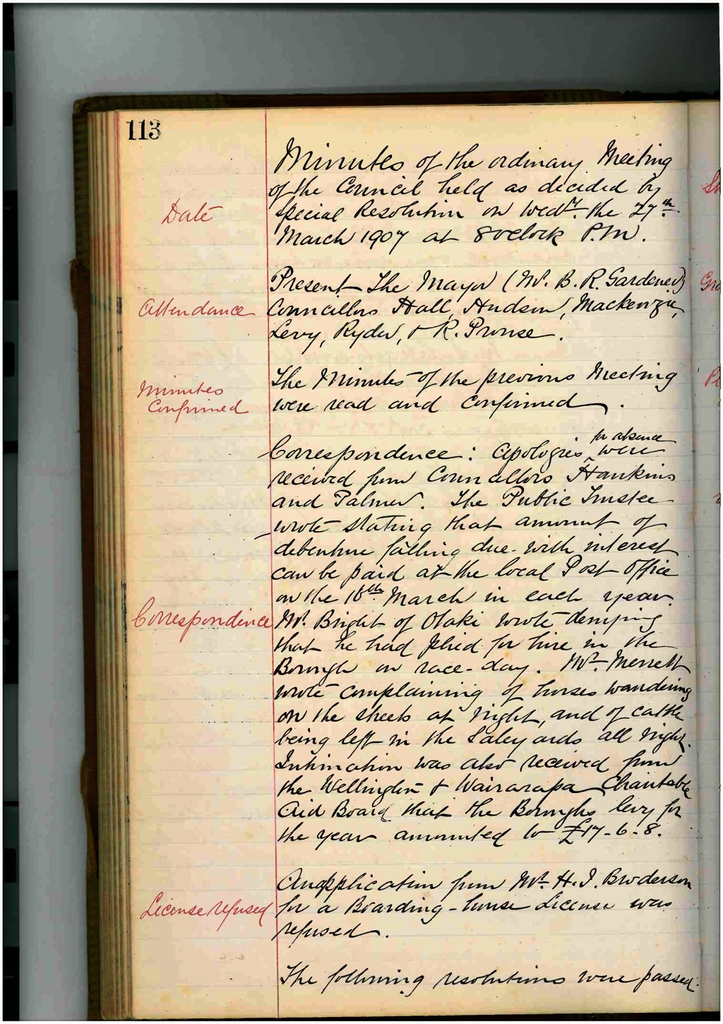 113
Minutes of the ordinary Meeting
of the Council held as decided by
Date
Special Resolution on Wedy. the 27th
March 1907 at 8 oclock P.M.
Present The Mayor (Mr. B. R. Gardener)
Attendance
Councillors Hall, Hudson, Mackenzie,
Levy, Ryder, & R. Prouse.
Minutes Confirmed
The Minutes of the previous Meeting
were read and Confirmed.
Correspondence: Apologies in absence were
received from Councillors Hankins
and Palmer. The Public Trustee
wrote stating that amount of
debenture falling due with interest
can be paid at the local Post Office
on the 16th March in each year.
Correspondence
Mr. Bright of Otaki wrote denying
that he had plied for hire in the
Borough on race-day. Mr. Merrett
wrote complaining of horses wandering
on the streets at night, and of cattle
being left in the Saleyards all night.
Intimation was also received from
the Wellington & Wairarapa Charitable
Aid Board that the Boroughs levy for
the year amounted to £17-6-8.
An application from Mr. H. J. Broderson
License refused
for a Boarding-house License was
refused.
The following resolutions were passed: